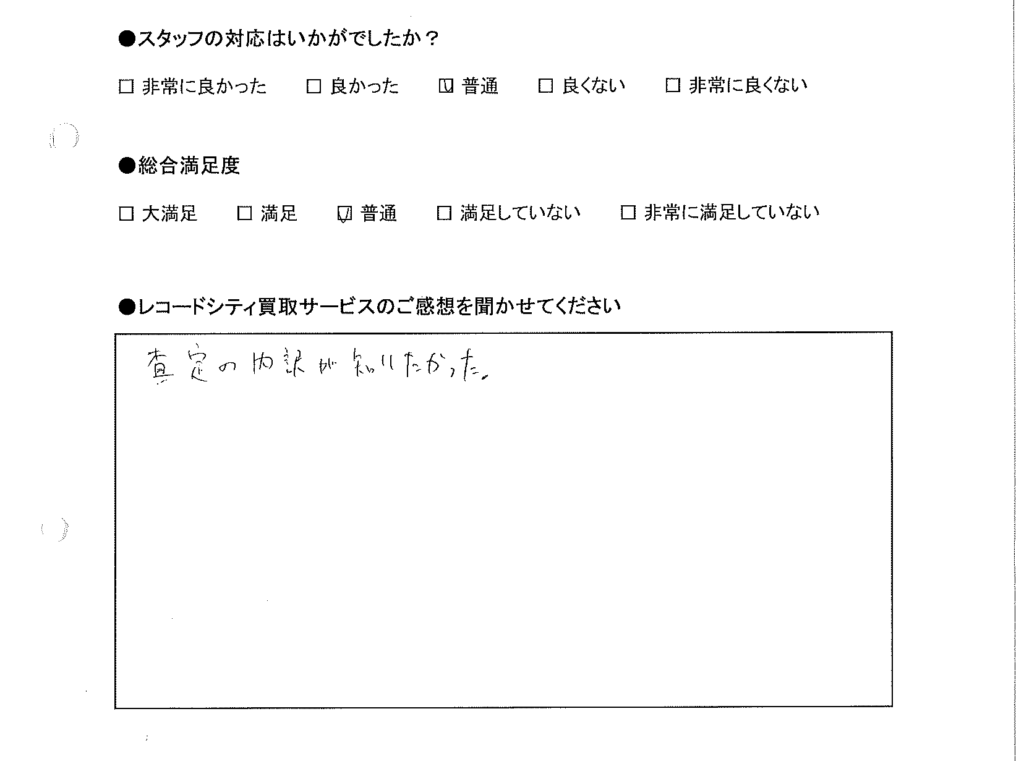 ●スタッフの対応はいかがでしたか？
□ 非常に良かった □ 良かった ☑ 普通 □ 良くない □ 非常に良くない
●総合満足度
□ 大満足 □ 満足 ☑ 普通 □ 満足していない □ 非常に満足していない
●レコードシティ買取サービスのご感想を聞かせてください
査定の内訳が知りたかった。